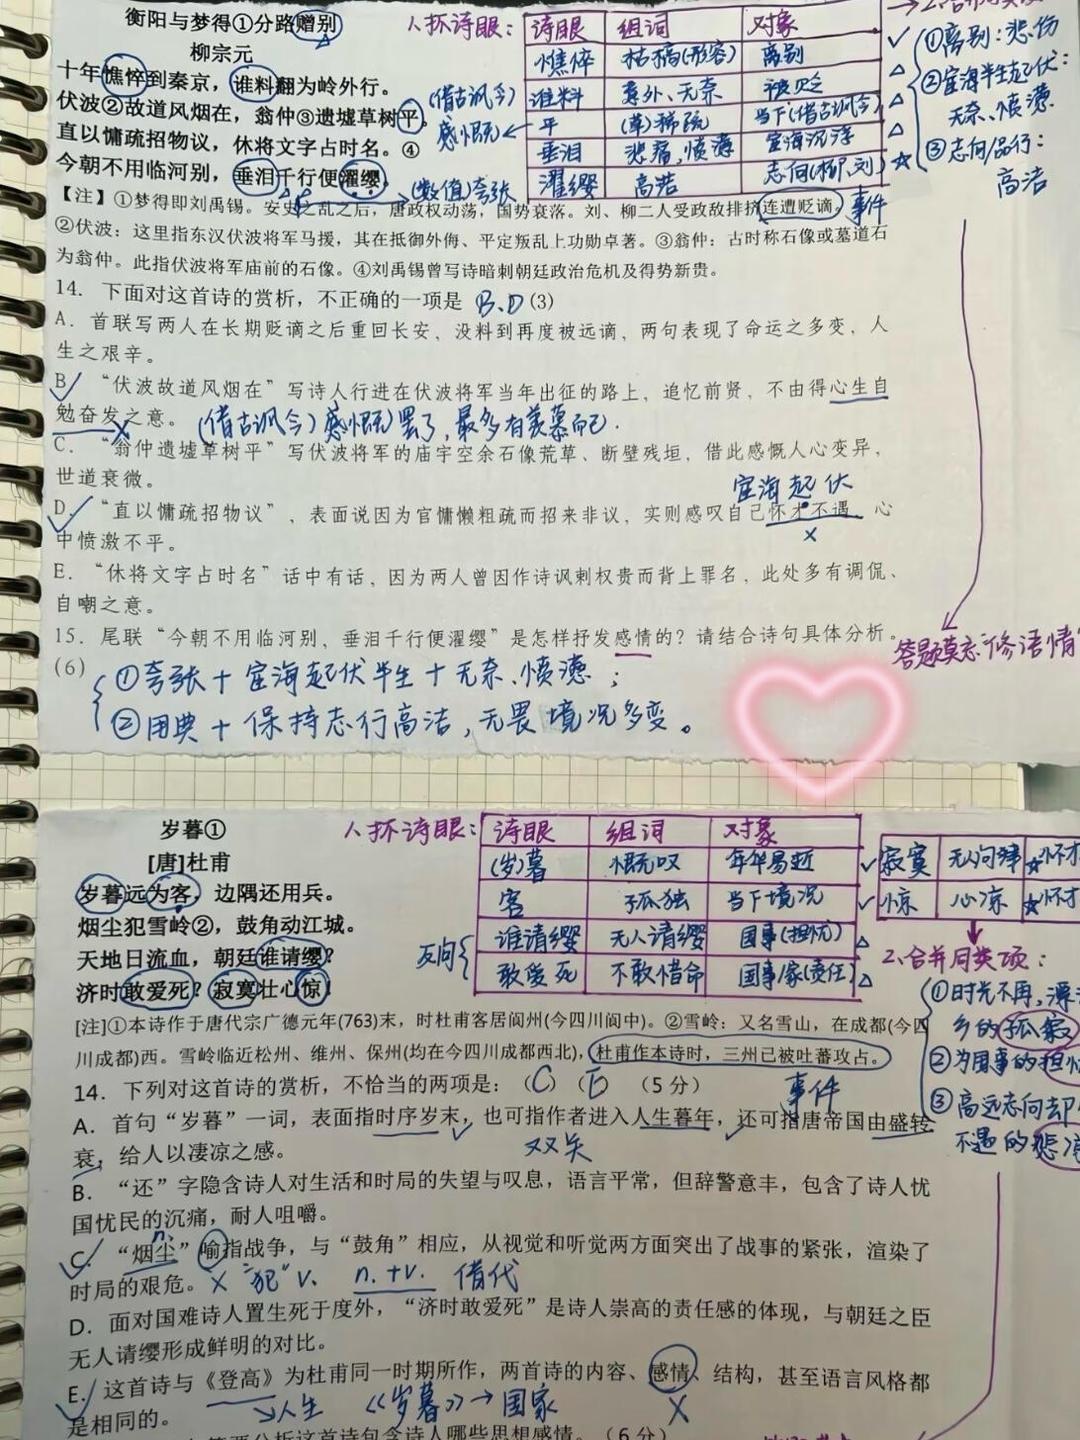 衡阳与梦得①分路赠别
人抓诗眼：
诗眼 组词 对象
柳宗元
憔悴 枯槁(形容) 离别
谁料 意外、无奈 被贬
平 (草)稀疏 当下(借古讽今)
垂泪 悲痛,愤懑 宦海沉浮
濯缨 高洁 志向(柳、刘)
十年憔悴到秦京，谁料翻为岭外行。
伏波②故道风烟在，翁仲③遗墟草树平。
(借古讽今)
感慨
直以慵疏招物议，休将文字占时名。④
今朝不用临河别，垂泪千行便濯缨。
(数值)夸张
①离别：悲伤
②宦海半生起伏：
无奈、愤懑
③志向/品行：
高洁
【注】①梦得即刘禹锡。安史之乱之后，唐政权动荡，国势衰落。刘、柳二人受政敌排挤连遭贬谪。
事件
②伏波：这里指东汉伏波将军马援，其在抵御外侮、平定叛乱上功勋卓著。③翁仲：古时称石像或墓道石
为翁仲。此指伏波将军庙前的石像。④刘禹锡曾写诗暗刺朝廷政治危机及得势新贵。
14. 下面对这首诗的赏析，不正确的一项是 B、D (3)
A. 首联写两人在长期贬谪之后重回长安，没料到再度被远谪，两句表现了命运之多变，人
生之艰辛。
B. “伏波故道风烟在”写诗人行进在伏波将军当年出征的路上，追忆前贤，不由得心生自
勉奋发之意。 (借古讽今)感慨罢了,最多有羡慕而已.
C. “翁仲遗墟草树平”写伏波将军的庙宇空余石像荒草、断壁残垣，借此感慨人心变异，
世道衰微。
宦海起伏
D. “直以慵疏招物议”，表面说因为官慵懒粗疏而招来非议，实则感叹自己怀才不遇 心
中愤激不平。
E. “休将文字占时名”话中有话，因为两人曾因作诗讽刺权贵而背上罪名，此处多有调侃、
自嘲之意。
15. 尾联“今朝不用临河别，垂泪千行便濯缨”是怎样抒发感情的？请结合诗句具体分析。
(6)
答题莫忘“修语情”
①夸张+宦海起伏半生+无奈、愤懑；
②用典+保持志行高洁,无畏境况多变。
岁暮①
人抓诗眼：
诗眼 组词 对象
[唐]杜甫
(岁)暮 慨叹 年华易逝
客 孤独 当下境况
谁请缨 无人请缨 国事(担忧)
敢爱死 不敢惜命 国事/家(责任)
反问
寂寞 无人问津 怀才
惊 心凉 怀才
岁暮远为客，边隅还用兵。
烟尘犯雪岭②，鼓角动江城。
天地日流血，朝廷谁请缨？
济时敢爱死？寂寞壮心惊！
2、合并同类项：
①时光不再,漂
乡的孤寂
②为国事的担忧
③高远志向却
不遇的悲凉
[注]①本诗作于唐代宗广德元年(763)末，时杜甫客居阆州(今四川阆中)。②雪岭：又名雪山，在成都(今四
川成都)西。雪岭临近松州、维州、保州(均在今四川成都西北)，杜甫作本诗时，三州已被吐蕃攻占。
事件
14. 下列对这首诗的赏析，不恰当的两项是：（C）（E）（5分）
A. 首句“岁暮”一词，表面指时序岁末，也可指作者进入人生暮年，还可指唐帝国由盛转
衰，给人以凄凉之感。
双关
B. “还”字隐含诗人对生活和时局的失望与叹息，语言平常，但辞警意丰，包含了诗人忧
国忧民的沉痛，耐人咀嚼。
n.
C. “烟尘”喻指战争，与“鼓角”相应，从视觉和听觉两方面突出了战事的紧张，渲染了
时局的艰危。 X “犯”v. n.+v. 借代
D. 面对国难诗人置生死于度外，“济时敢爱死”是诗人崇高的责任感的体现，与朝廷之臣
无人请缨形成鲜明的对比。
E. 这首诗与《登高》为杜甫同一时期所作，两首诗的内容、感情、结构，甚至语言风格都
是相同的。 人生 《岁暮》→国家 X
分析这首诗包含诗人哪些思想感情。（6分）